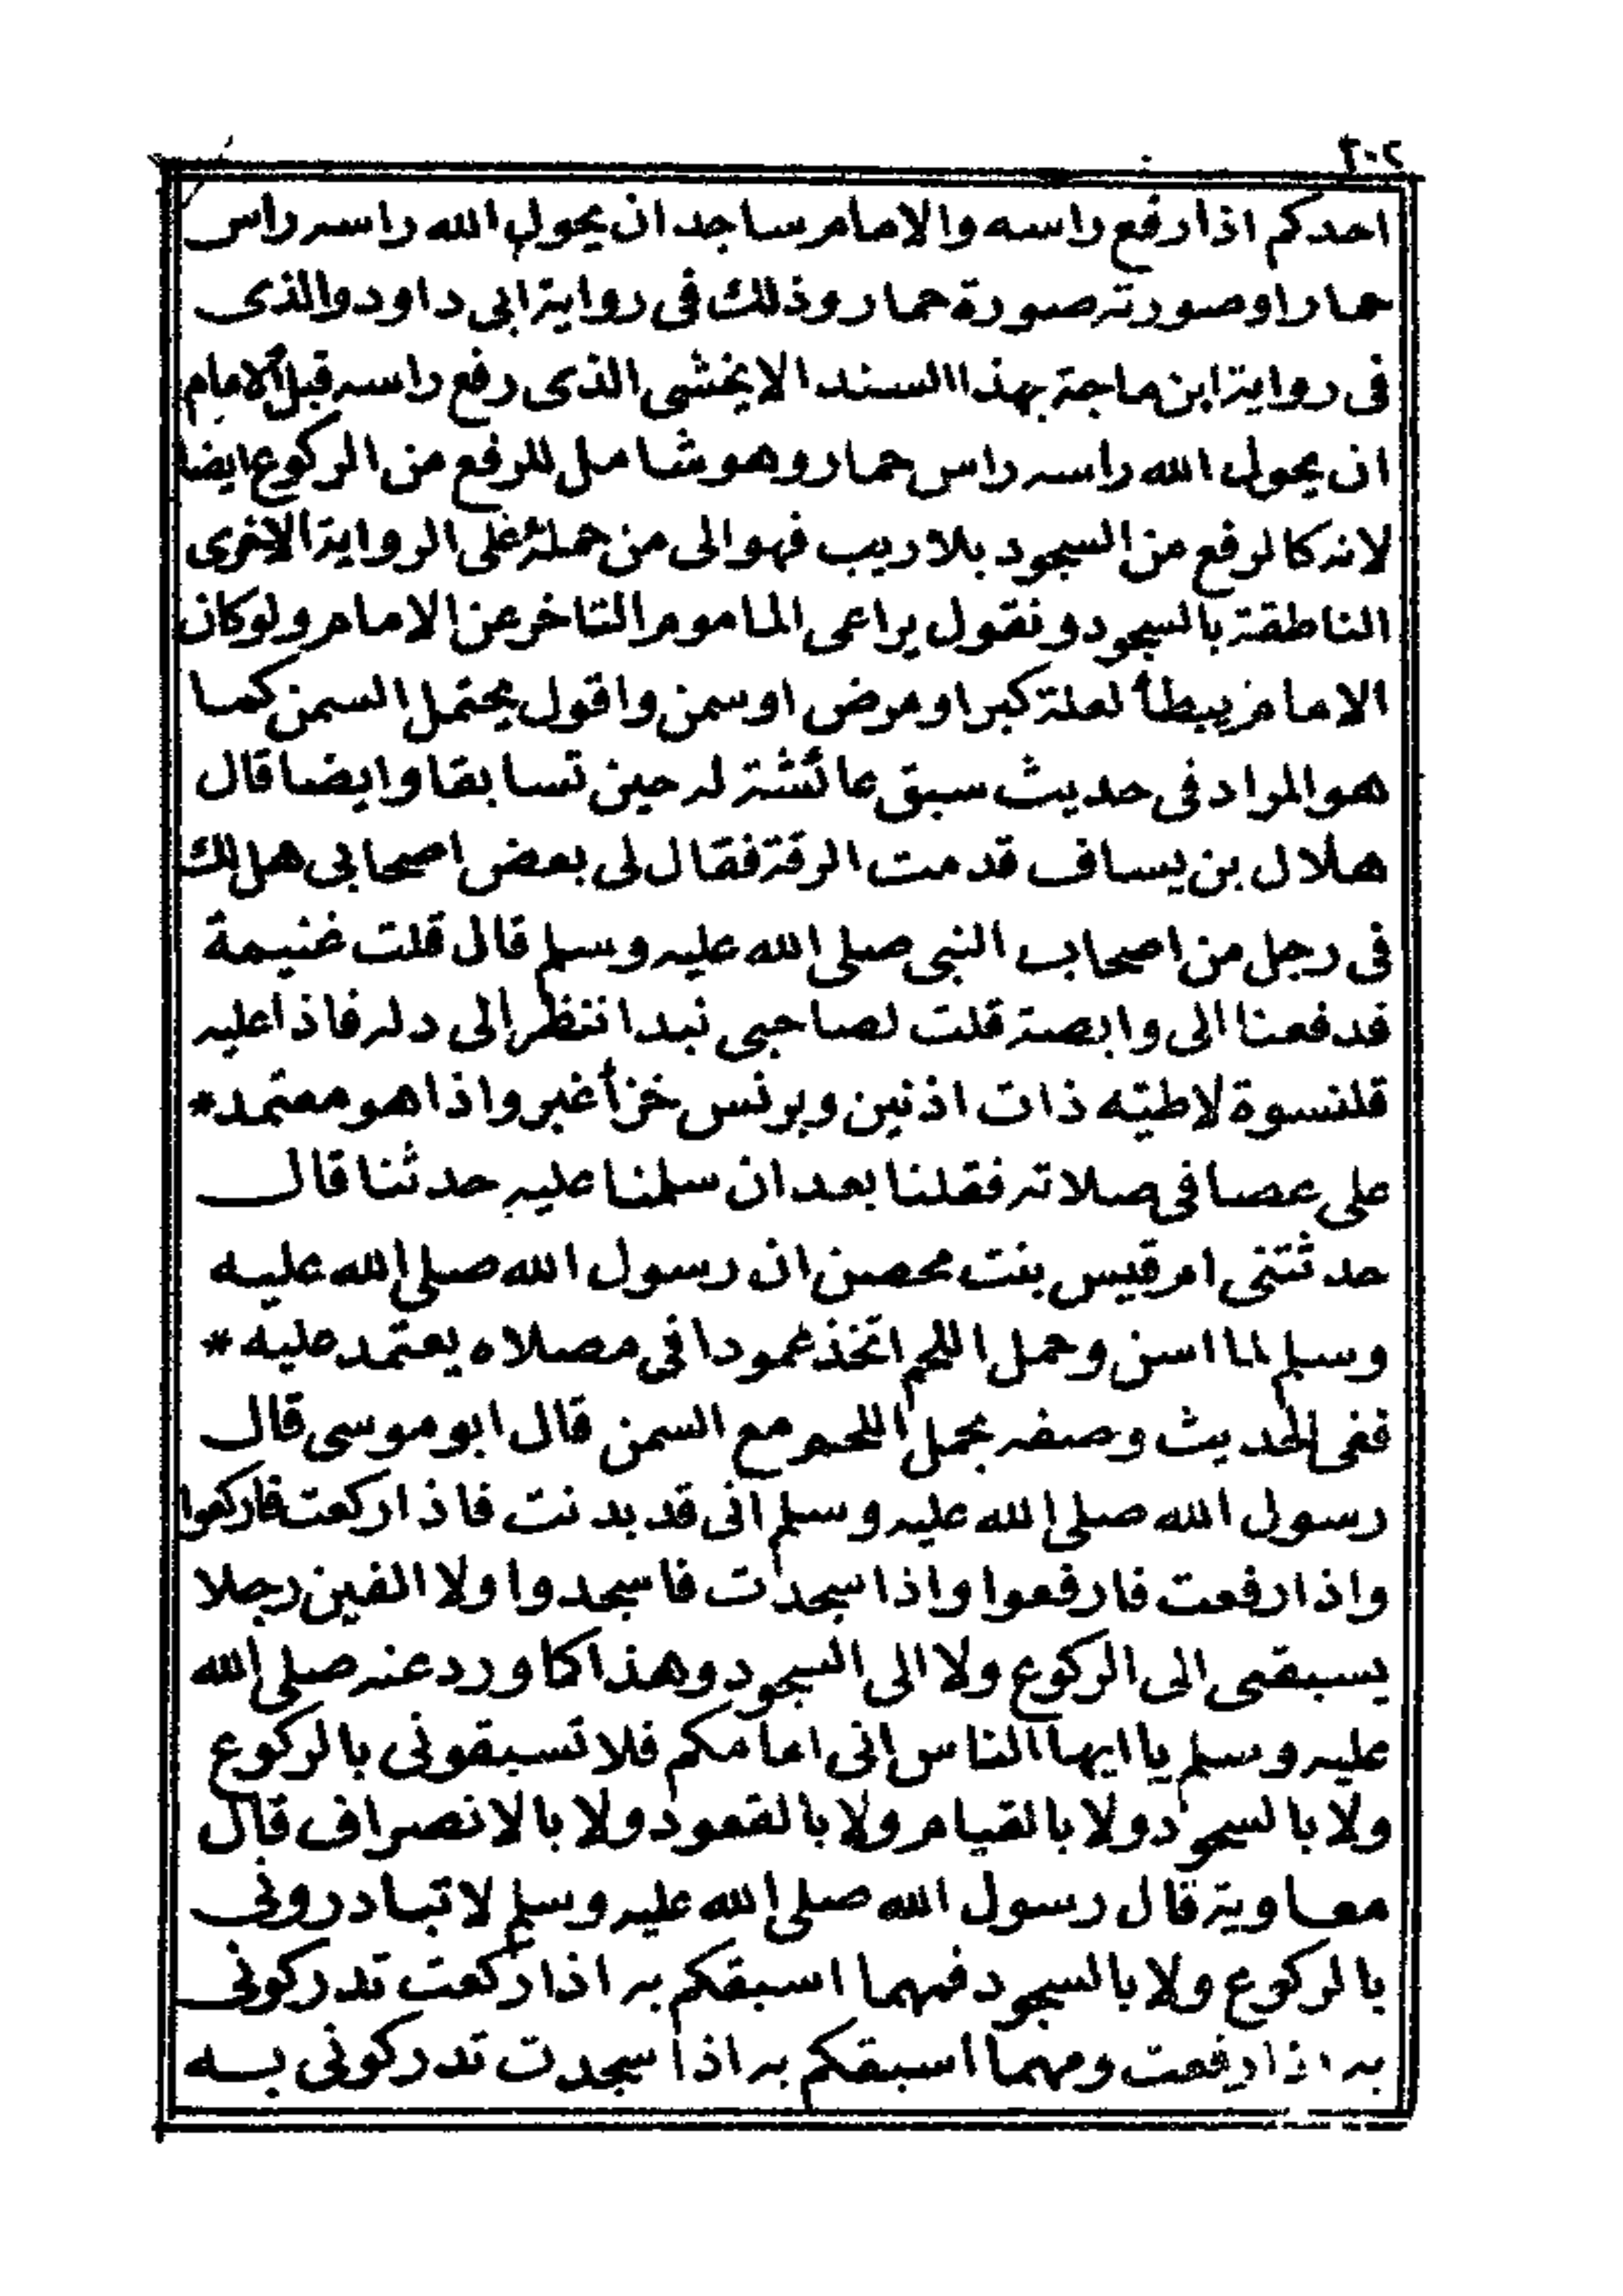 ٢٠٢
احدكم اذا رفع راسه والامام ساجد ان يحول الله راسه راس
حمار او صورته صورة حمار وذلك فى رواية ابى داود والذى
فى رواية ابن ماجة بهذا السند الا يخشى الذى رفع راسه قبل الامام
ان يحول الله راسه راس حمار وهو شامل للرفع من الركوع ايضا
لانه كالرفع من السجود بلا ريب فهو الى من حمله على الرواية الاخرى
الناطقة بالسجود ونقول يراعى الماموم التاخر عن الامام ولو كان
الامام يبطأ لعلة كبر او مرض او سمن واقول يحتمل السمن كما
هو المراد فى حديث سبق عائشة له حين تسابقا وايضا قال
هلال بن يساف قدمت الرقة فقال لى بعض اصحابى هل لك
فى رجل من اصحاب النبى صلى الله عليه وسلم قال قلت غنيمة
فدفعنا الى وابصة قلت لصاحبى نبدا ننظر الى دله فاذا عليه
قلنسوة لاطيته ذات اذنين وبرنس خز أغبر واذا هو معتمد *
على عصا فى صلاته فقلنا بعد ان سلمنا عليه حدثنا قال
حدثتنى ام قيس بنت محصن ان رسول الله صلى الله عليه
وسلم لما اسن وحمل اللحم اتخذ عمودا فى مصلاه يعتمد عليه *
ففى الحديث وصفه بحمل اللحم مع السمن قال ابو موسى قال
رسول الله صلى الله عليه وسلم انى قد بدنت فاذا ركعت فاركعوا
واذا رفعت فارفعوا واذا سجدت فاسجدوا ولا الفين رجلا
يسبقى الى الركوع ولا الى السجود وهذا كما ورد عنه صلى الله
عليه وسلم يا ايها الناس انى امامكم فلا تسبقونى بالركوع
ولا بالسجود ولا بالقيام ولا بالقعود ولا بالانصراف قال
معاوية قال رسول الله صلى الله عليه وسلم لا تبادرونى
بالركوع ولا بالسجود فمهما اسبقكم به اذا ركعت تدركونى
به اذا رفعت ومهما اسبقكم به اذا سجدت تدركونى به